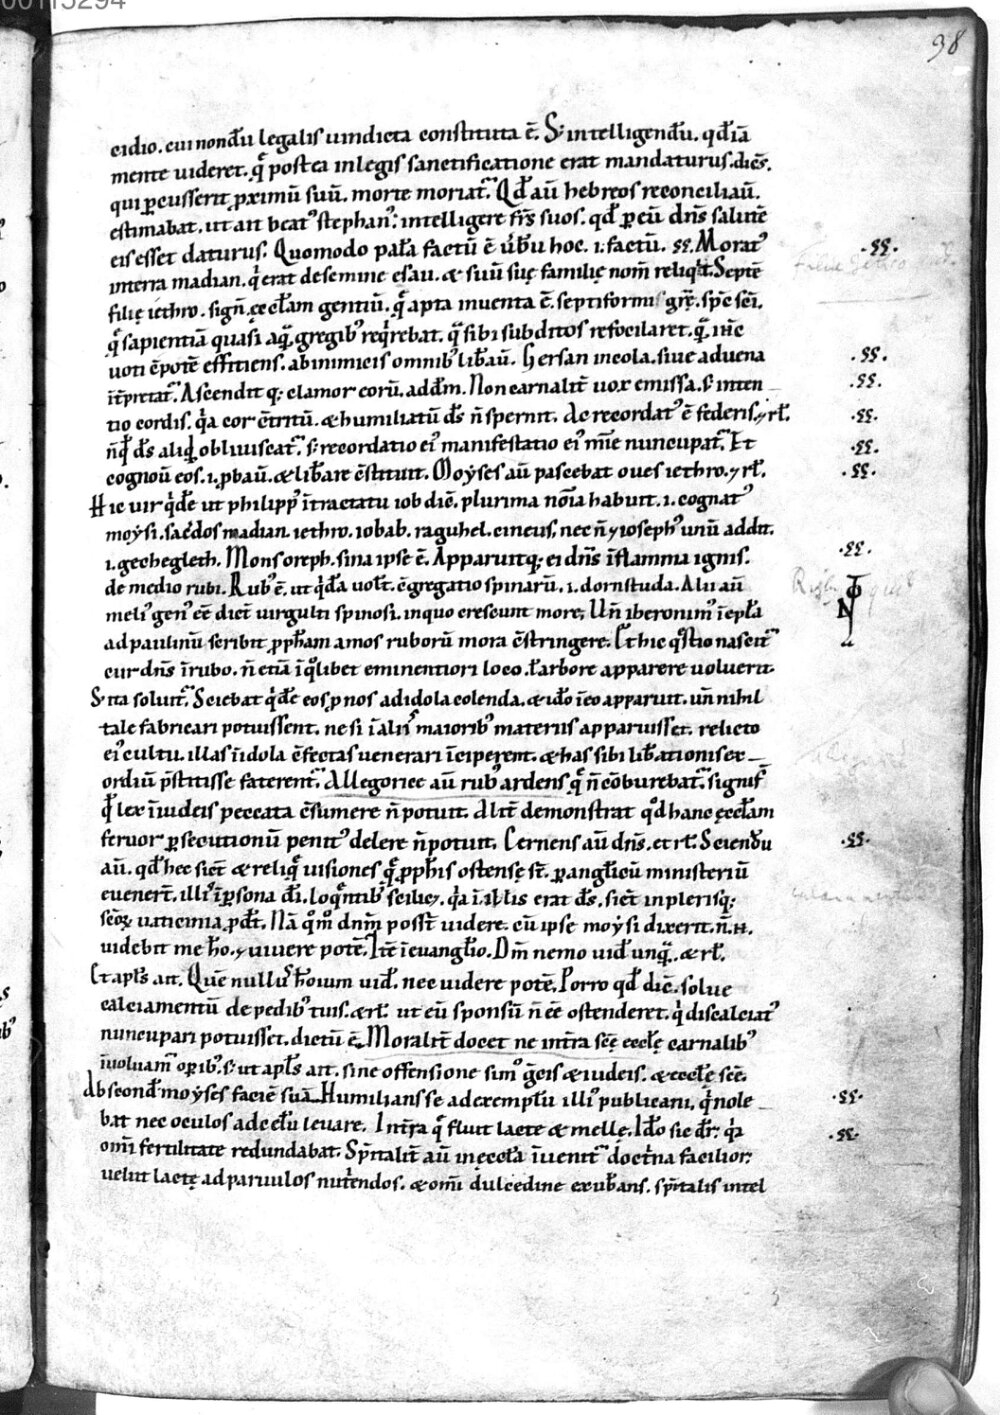 00115294
98
cidio. cui nondū legalis uindicta constituta ē. S; intelligendū. qđ iā
mente uideret. q̄ postea in legis sanctificatione erat mandaturus. dicēs.
qui ꝑcusserit ꝓximū suū. morte moriat᷑. Qđ aū hebreos reconciliaū.
estimabat. ut ait beatꝰ stephanꝰ: intelligere frs̄ suos. qđ ꝑ eū dn̄s salutē
eis esset daturus. Quomodo palā factū ē ūbū hoc. i. factū. §§. Moratꝰ
in terra madian. q̇ erat de semine esau. & suū suę familię nom̄ reliq̇t. Septē
filię iethro. sign̄. ęcclam gentiū. q̄ apta inuenta ē. septiformis grę̄. spc̄ sc̄i.
q̄ sapientiā quasi aquā gregibꝰ req̇rebat. qͣ sibi subditos refocilaret. quā
uoti c̄potē efficiens. ab inimicis omnibꝰ libaū. Gersan incola. siue aduena
int̄pretat᷑. Ascendit q; clamor eorū. ad dm̄. Non carnalit̄ uox emissa. s; inten
tio cordis. q̇a cor c̄tritū. & humiliatū ds̄ n̄ spernit. Ac recordatꝰ ē federis. ⁊ rl̄.
n̄ qđ ds̄ aliqđ obliuiscat᷑. s; recordatio eiꝰ manifestatio eiꝰ nuncupat᷑. Et
cognoū eos. i. ꝓbaū. & libare c̄stituit. Moẏses aū pascebat oues iethro. ⁊ rl̄.
Hic uir q̇dē ut philippꝰ ī tractatu iob dic̄. plurima nōīa habuit. i. cognatꝰ
moẏsi. sacdos madian. iethro. iobab. raguhel. cineus, nec n̄ ⁊ iosephꝰ unū addit.
i. gechegleth. Mons oreph. sina ipse ē. Apparuitq; ei dn̄s ī flamma ignis.
de medio rubi. Rubꝰ ē. ut q̇dā uolt̄. c̄gregatio spinarū. i. dornstuda. Alii aū
meliꝰ genꝰ eē dict̄ uirgulti spinosi. in quo crescunt more; Un̄ iheronimꝰ ī epla
ad paulinū scribit ꝓpham amos ruborū mora c̄stringere. Et hic q̄stio nascit᷑
cur dn̄s ī rubo. n̄ etiā ī q̊libet eminentiori loco. ł arbore apparere uoluerit.
S; ita soluit᷑. Sciebat q̇dē eos ꝓnos ad idola colenda. & idō īco apparuit. un̄ nihil
tale fabricari potuissent. ne si ī aliis maioribꝰ materiis apparuisset. relicto
eiꝰ cultu. illas ī idola c̄fectas uenerari īciperent. & has sibi libationis ex
ordiū p̄stitisse faterent᷑. Allegorice aū rubꝰ ardens q̄ n̄ cōburebat᷑. signif̄
qđ lex ī iudeis peccata c̄sumere n̄ potuit. Alit̄ demonstrat qđ hanc ęcclam
feruor ꝑsecutionū penitꝰ delere n̄ potuit. Cernens aū dn̄s. et rl̄. Sciendū
aū. qđ hec sict̄ & reliqͣ uisiones q̄ ꝓphis ostensę st̄. ꝑ anglicū ministeriū
euenert̄. illiꝰ ī ꝑsona dī. loquentibꝰ scilic̄. q̇a ī illis erat ds̄. sict̄ in plerisq;
sc̄oꝝ uaticinia ꝓdt̄. Nā q̊m̊ dnm̄ posst̄ uidere. cū ipse moẏsi dixerit. n̄. n̄.
uidebit me ho. ⁊ uiuere potē. Itē ī euanglio. Dm̄ nemo uid̄ unquā. & rl̄.
Et apls̄ ait. Quē nullus hoium uid̄. nec uidere potē. Porro qđ dic̄. solue
calciamentū de pedibꝰ tuis. & rl̄. ut eū sponsū n̄ eē ostenderet. q̇ discalciatꝰ
nuncupari potuisset. dictū ē. Moralit̄ docet ne intra sc̄ę eccłę carnalibꝰ
īuoluam᷑ oꝑibꝰ. s; ut apls̄ ait. sine offensione simꝰ gc̄is & iudeis. & eccłę sc̄ę.
Abscond̄ moẏses faciē suā. Humilians se ad exemplū illiꝰ publicani, q̇ nole
bat nec oculos ad cęlū leuare. In terra q̄ fluit lacte & melle. Idō sic dr̄. q̇a
omī fertilitate redundabat. Spītalit̄ aū in ęccła īuenit᷑ doct̄na facilior.
uelut lactę ad paruulos nut̄endos. & omī dulcedine exubans. spītalis intel
.§§.
.§§.
.§§.
.§§.
.§§.
.§§.
.§§.
.§§.
.§§.
.§§.